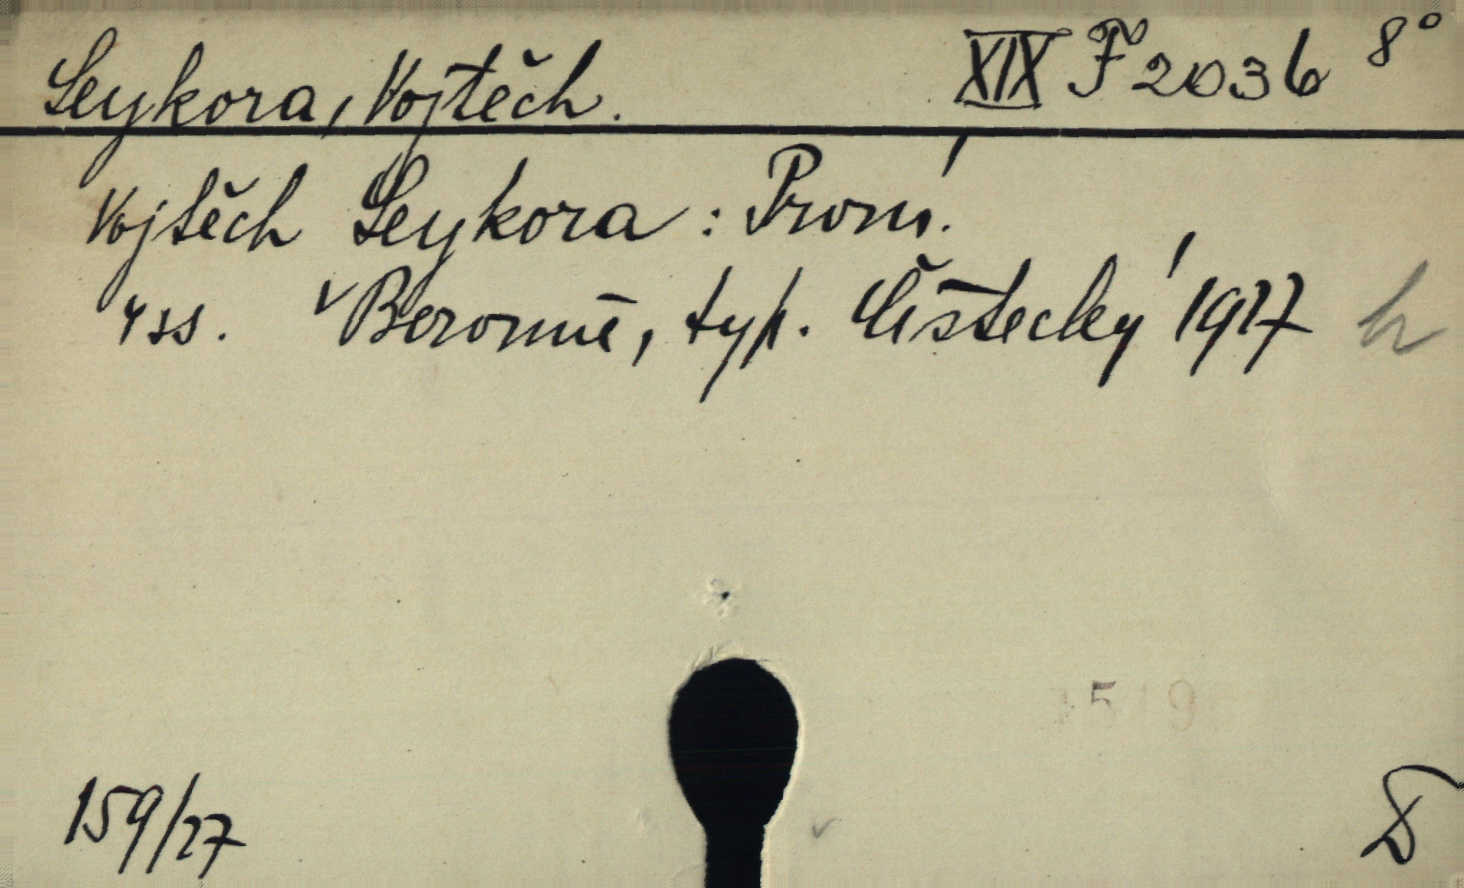 Seykora, Vojtěch. XIX F 2036 8°
Vojtěch Seykora: První.
4 ss. V Berouně, typ. Čištecký 1927
159/27